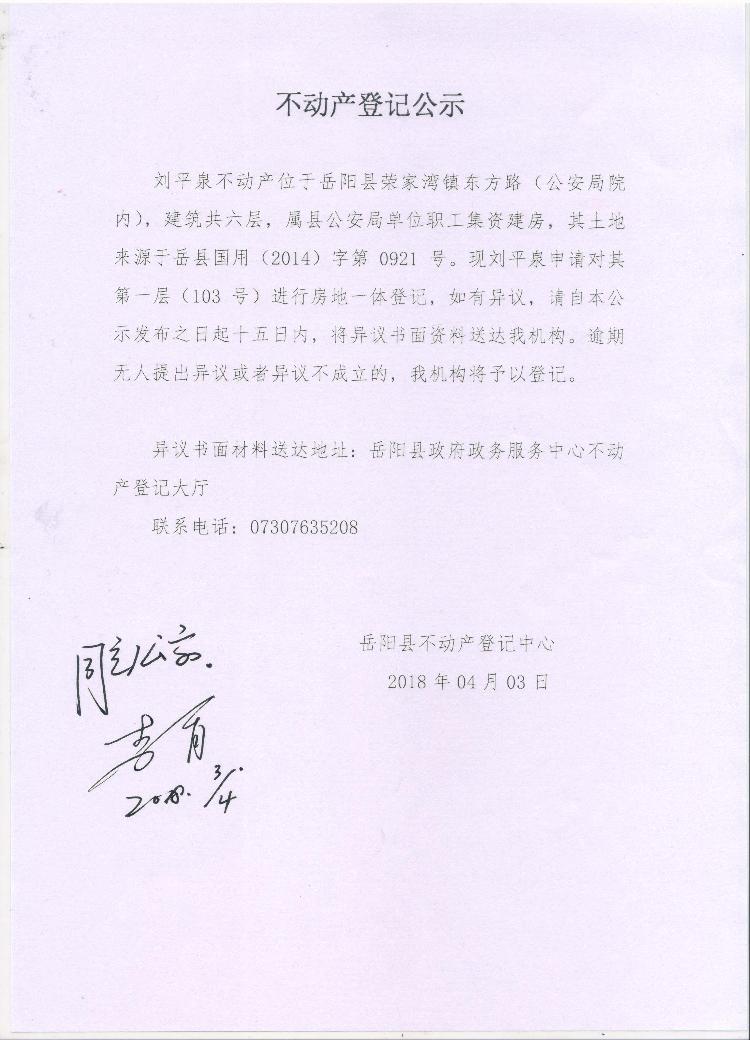 不动产登记公示
刘平泉不动产位于岳阳县荣家湾镇东方路（公安局院
内），建筑共六层，属县公安局单位职工集资建房，其土地
来源于岳县国用（2014）字第 0921 号。现刘平泉申请对其
第一层（103 号）进行房地一体登记，如有异议，请自本公
示发布之日起十五日内，将异议书面资料送达我机构。逾期
无人提出异议或者异议不成立的，我机构将予以登记。
异议书面材料送达地址：岳阳县政府政务服务中心不动
产登记大厅
联系电话：07307635208
岳阳县不动产登记中心
2018 年 04 月 03 日
同意公示.
2018. 3/4